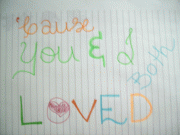 'Cause
You & I
Both
LOVED